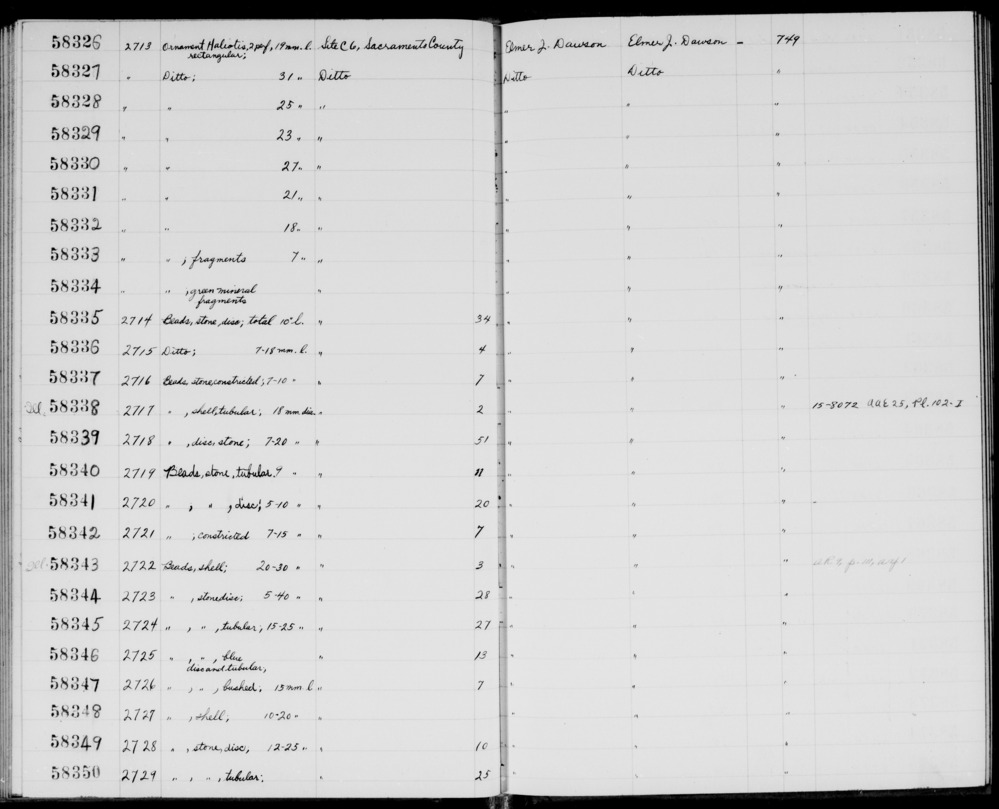 58326 2713 Ornament Haliotis, 2 perf, 19 mm. l. Site C 6, Sacramento County Elmer J. Dawson Elmer J. Dawson - 749
rectangular;
58327 " Ditto; 31 " Ditto Ditto Ditto "
58328 " " 25 " " " " "
58329 " " 23 " " " " "
58330 " " 27 " " " " "
58331 " " 21 " " " " "
58332 " " 18 " " " " "
58333 " " ; fragments 7 " " " " "
58334 " " , green mineral " " " "
fragments
58335 2714 Beads, stone, disc; total 10" l. " 34 " " "
58336 2715 Ditto; 7-18 mm. l. " 4 " " "
58337 2716 Beads, stone constricted; 7-10 " " 7 " " "
58338 2717 " , shell, tubular; 18 mm dia. " 2 " " " 15-8072 AAE 25, Pl. 102-I
58339 2718 " , disc, stone; 7-20 " " 51 " " "
58340 2719 Beads, stone, tubular 9 " " 11 " " "
58341 2720 " ; " , disc; 5-10 " " 20 " " "
58342 2721 " ; constricted 7-15 " " 7 " " "
58343 2722 Beads, shell; 20-30 " " 3 " " "
58344 2723 " , stone disc; 5-40 " " 28 " " "
58345 2724 " , " , tubular, 15-25 " " 27 " " "
58346 2725 " , " , blue " 13 " " "
disc and tubular,
58347 2726 " , " , bushed, 13 mm. l " 7 " " "
58348 2727 " , shell; 10-20 " " " " "
58349 2728 " , stone, disc; 12-25 " " 10 " " "
58350 2729 " , " , tubular; " 25 " " "